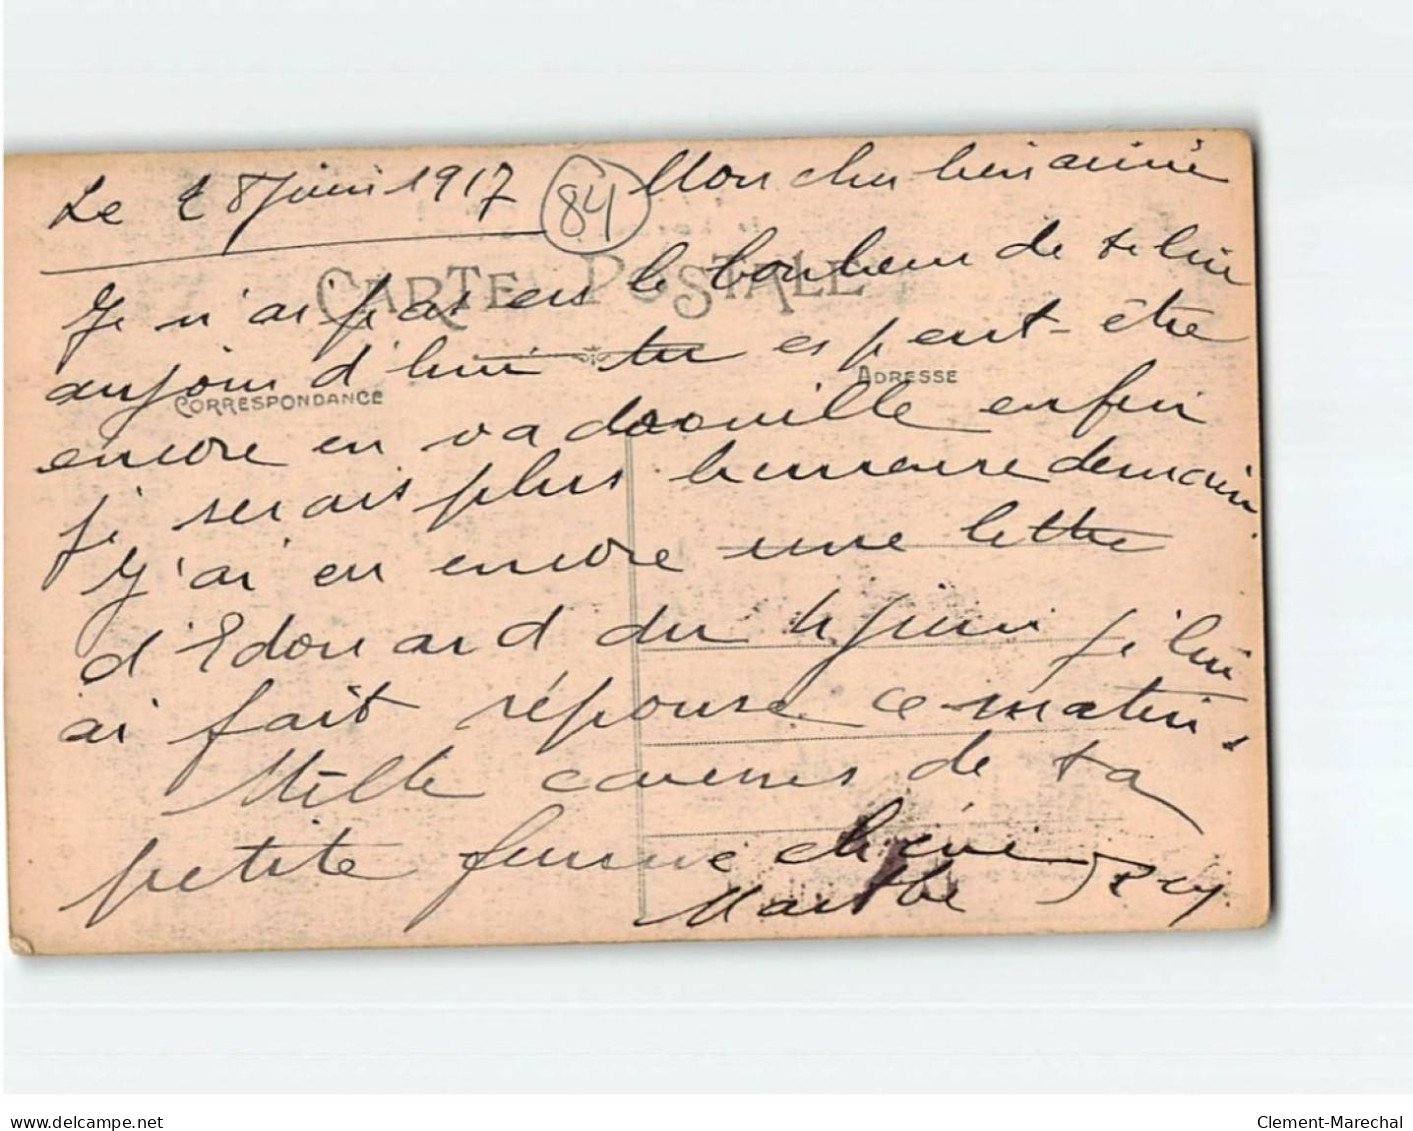 Le 28 Juin 1917 84 Mon cher bien aimé
CARTE POSTALE
Je n'ai pas eu le bonheur de te lire
aujourd'hui tu es peut-être
CORRESPONDANCE ADRESSE
encore en vadrouille enfin
je serais plus heureuse demain
J'ai eu encore une lettre
d'Edouard du 4 juin je lui
ai fait réponse ce matin.
Mille caresses de ta
petite femme chérie
Marthe
www.delcampe.net Clement-Marechal